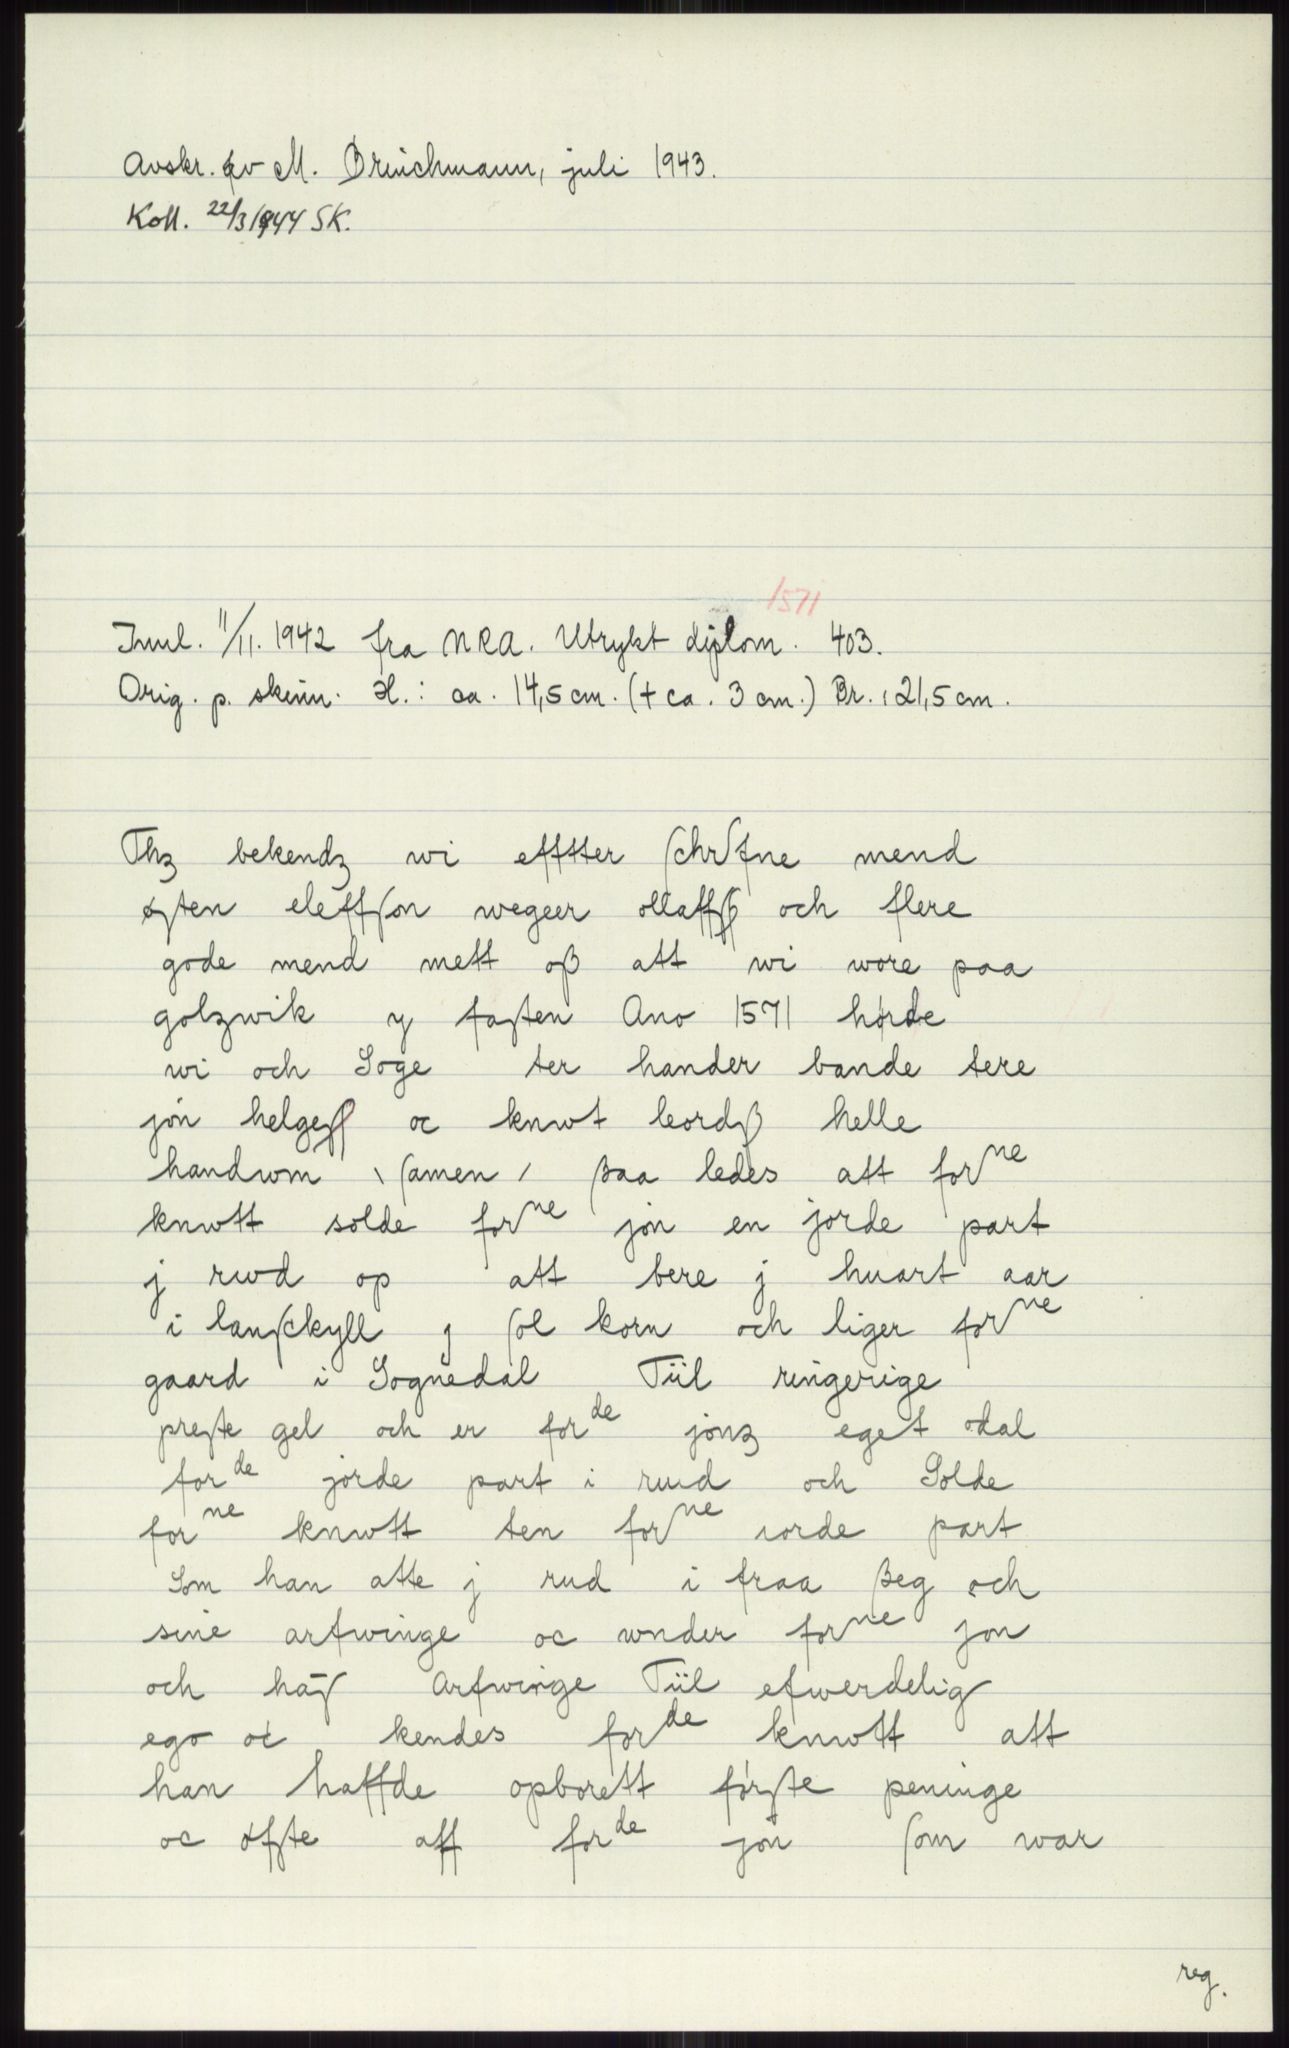 Avskr. av M. Brinchmann, juli 1943.
Koll. 22/3 1944 SK.
1571
Innl. 11/11. 1942 fra NRA. Utrykt diplom. 403.
Orig. p. skinn. H.: ca. 14,5 cm. (+ ca. 3 cm.) Br.: 21,5 cm.
Thz bekendz wi effter schrefne mend
østen eleffson wegeer ollaffß och flere
gode mend mett oß att wi wore paa
golzwik y fasten Ano 1571 hørde
wi och Soge ter hander bande tere
jón helgeß oc knwt leordß helle
handwm \ samen / ßaa ledes att forne
knwtt solde forne jón en jorde part
j rwd op att bere j huart aar
i lansckyll j sol korn och liger forne
gaard i Sognedal Tiil ringerige
preste gel och er forde jónz eget odal
forde jorde part i rwd och Solde
forne knwtt ten forne iorde part
Som han atte j rud i fraa ßeg och
sine arfwinge oc wnder forne jon
och hās Arfwinge Tiil efwerdelig
ego oc kendes forde knwtt att
han haffde opborett første peninge
oc øfste aff forde jón som war
reg.